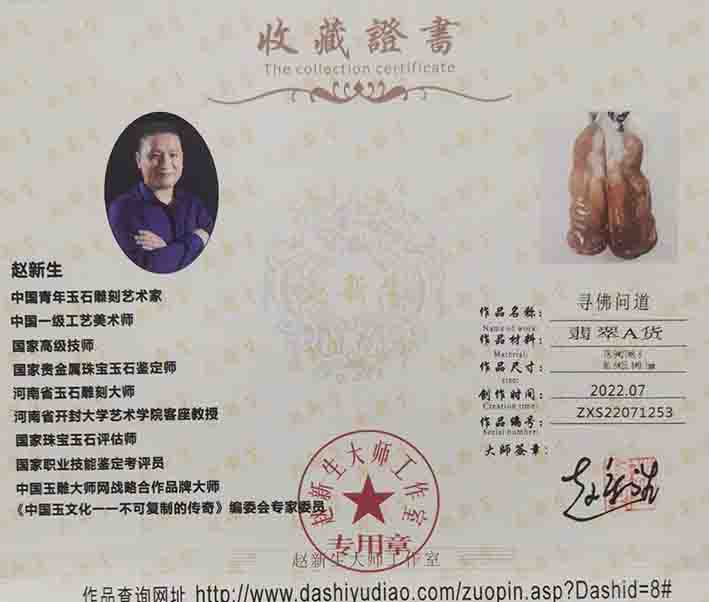 收藏證書
The collection certificate
赵新生
中国青年玉石雕刻艺术家
中国一级工艺美术师
国家高级技师
国家贵金属珠宝玉石鉴定师
河南省玉石雕刻大师
河南省开封大学艺术学院客座教授
国家珠宝玉石评估师
国家职业技能鉴定考评员
中国玉雕大师网战略合作品牌大师
《中国玉文化一一不可复制的传奇》编委会专家委员
作品名称：
寻佛问道
Name of work:
作品材料：
翡翠A货
Material:
作品尺寸：
size:
创作时间：
2022.07
Creation time:
作品编号：
ZXS22071253
Serial number:
大师签章：
赵新生大师工作室
专用章
赵新生大师工作室
作品查询网址 http://www.dashiyudiao.com/zuopin.asp?Dashid=8#